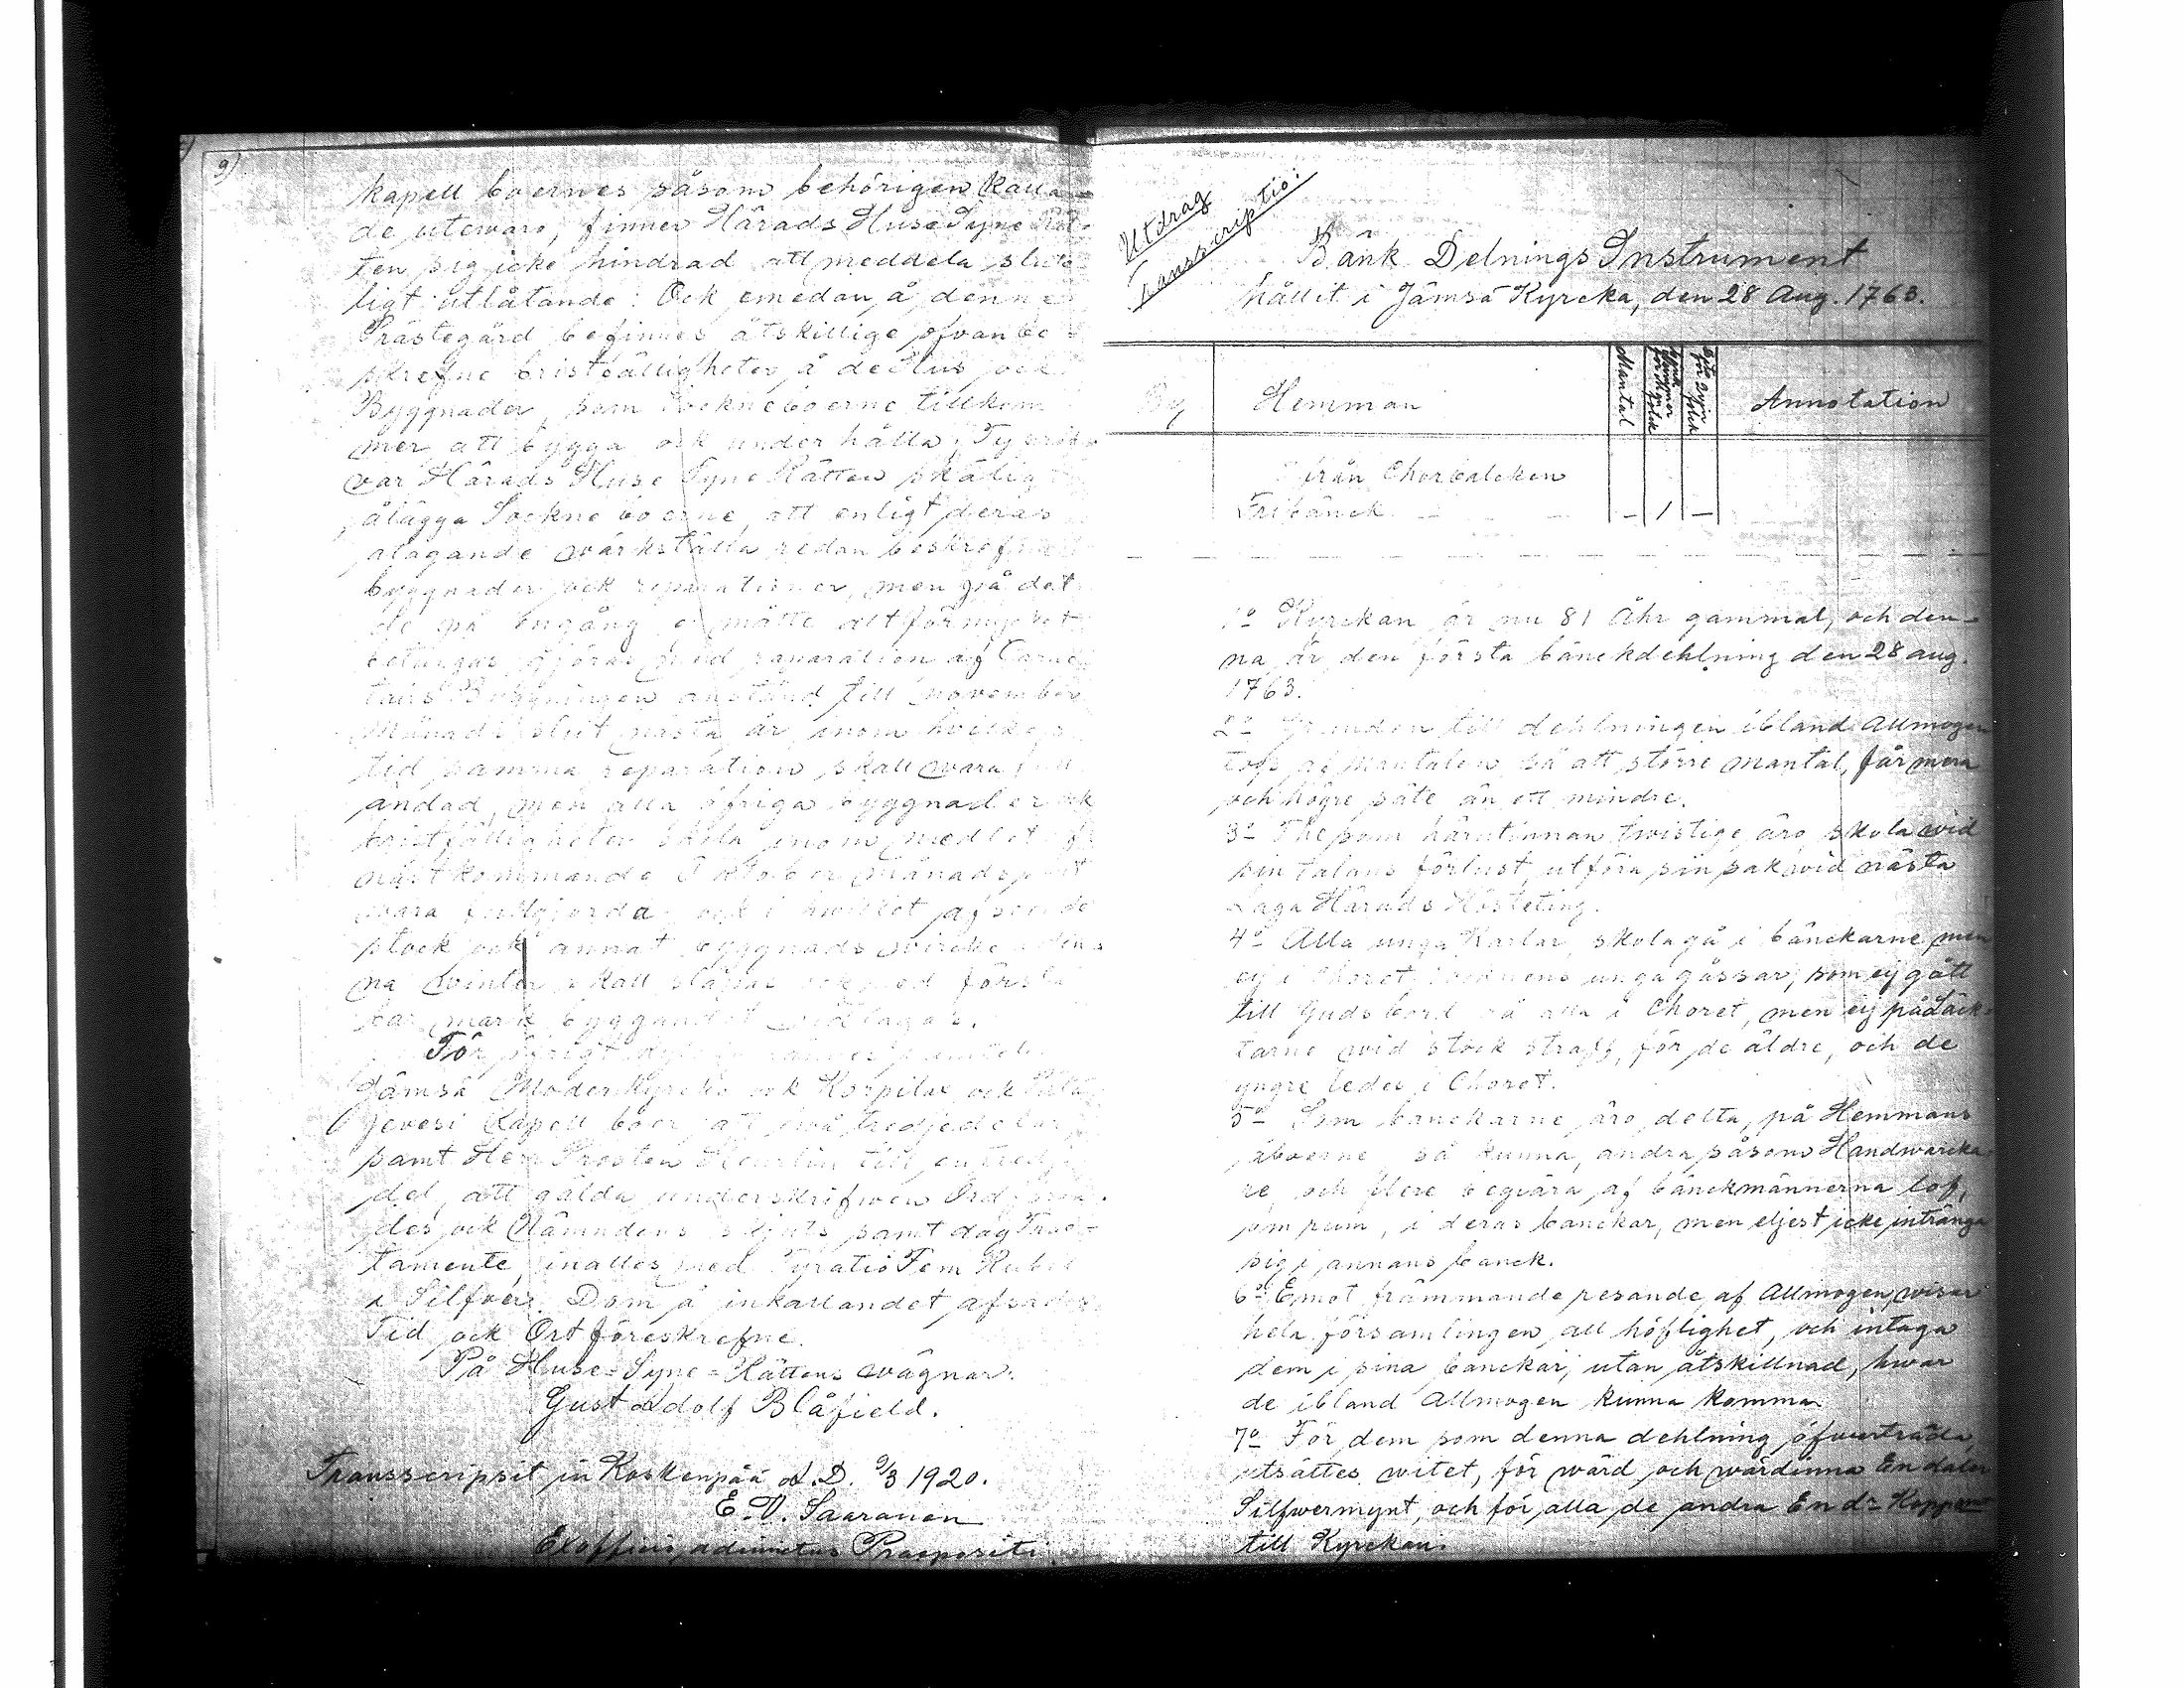 9)
kapell boernes såsom behörigen kalla=
de utewaro, finner Härads Huse Syne Rät=
ten sig icke hindrad att meddela slute=
ligt utlåtande: Ock emedan å denne
Prästegård befinnes åtskillige ofvan be
skrefne bristfälligheter å de Hus ock
Byggnader, som Sockneboerne tillkom
mer att bygga ock underhålla; Ty
var Härads Huse Syne Rätten skälig
ålägga Sockneboerne, att enligt deras
åtagande wärkställa redan beskrefne
byggnader ock reparationer, men på det
de på engång ej måtte altförmycket
betungas, gjöras med reparation af
Byggningen anstånd till november
Månads slut nästa år, inom hvilken
tid samma reparation skall wara full
ändad, men alla öfriga byggnader ock
bristfälligheter skola inom medlet af
nästkommande Oktober månad
wara fullgjorda, ock i hwilket afseende
stock ock annat byggnads wircke den=
na winter skall släpas ock med första
bar mark byggandet widtagas.
För öfrigt
Jämsä Moderkyrcko ock Korpilax ock
jevesi Kapell boer att två tredjedelar
samt Herr Prosten till en tredje
del, att gälda underskrifwen Ordföran=
des ock Nämndens skjuts samt dag Trac=
tamente, inalles med Fyratio Fem Rubel
i Silfver. Dom å inkallandet afsades
Tid ock Ort föreskrefne.
På Huse=Syne=Rättens wägnar:
Gust Adolf Blåfield.
Transscripsit in Koskenpää A.D. 9/3 1920.
E. V. Saaranen
Ex officio adiunctus Praepositi.
Utdrag
Transscriptio:
Bänk Delnings Instrument
hållit i Jämsä Kyrcka, den 28 Aug. 1763.
By
Hemman
Mantal
Annotation
från Chorbalcken
Fribänck — — — 1 —
1o Kyrckan är nu 81 Åhr gammal, och den=
na är den första bänckdehlning den 28 aug.
1763.
2o Grunden till dehlningen ibland Allmogen
togs af Mantalen så att större mantal, får mera
och högre säte än ett mindre.
3o The som härutinnan twistige äro, skola wid
sin talans förlust, utföra sin sak wid nästa
Laga Härads Hösteting.
4o Alla unga Karlar skola gå i bänckarne men
ej i Choret, unga gåssar, som ej gått
till Guds bord gå alla i Choret, men ej på Läck=
tarne wid stock straff, för de äldre, och de
yngre ledes i Choret.
5o Som bänckarne äro delta, på Hemmans
åboerne, så kunna, andra såsom Handwärcka
re, och flere begiära, af bänckmännerna lof,
om rum, i deras bänckar, men eljest icke intränga
sig i annans bänck.
6o Emot främmande resande af Allmogen, wisar
hela församlingen all höflighet, och intaga
dem i sina bänckar, utan åtskillnad, hwar
de ibland Allmogen kunna komma
7o För dem som denna dehlning öfwerträda,
utsättes witet, för wärd och wärdinna En daler
Silfwermynt, och för alla de andra En dr Koppmt
till Kyrckan.